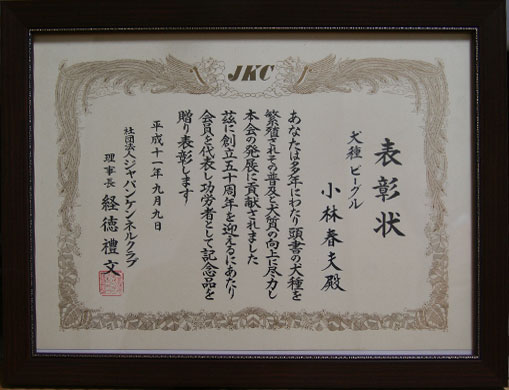 JKC
表彰状
犬種 ビーグル
小林春夫殿
あなたは多年にわたり頭書の犬種を
繁殖されその普及と犬質の向上に尽力し
本会の発展に貢献されました
茲に創立五十周年を迎えるにあたり
会員を代表し功労者として記念品を
贈り表彰します
平成十一年九月九日
社団法人ジャパンケンネルクラブ
理事長 経徳禮文